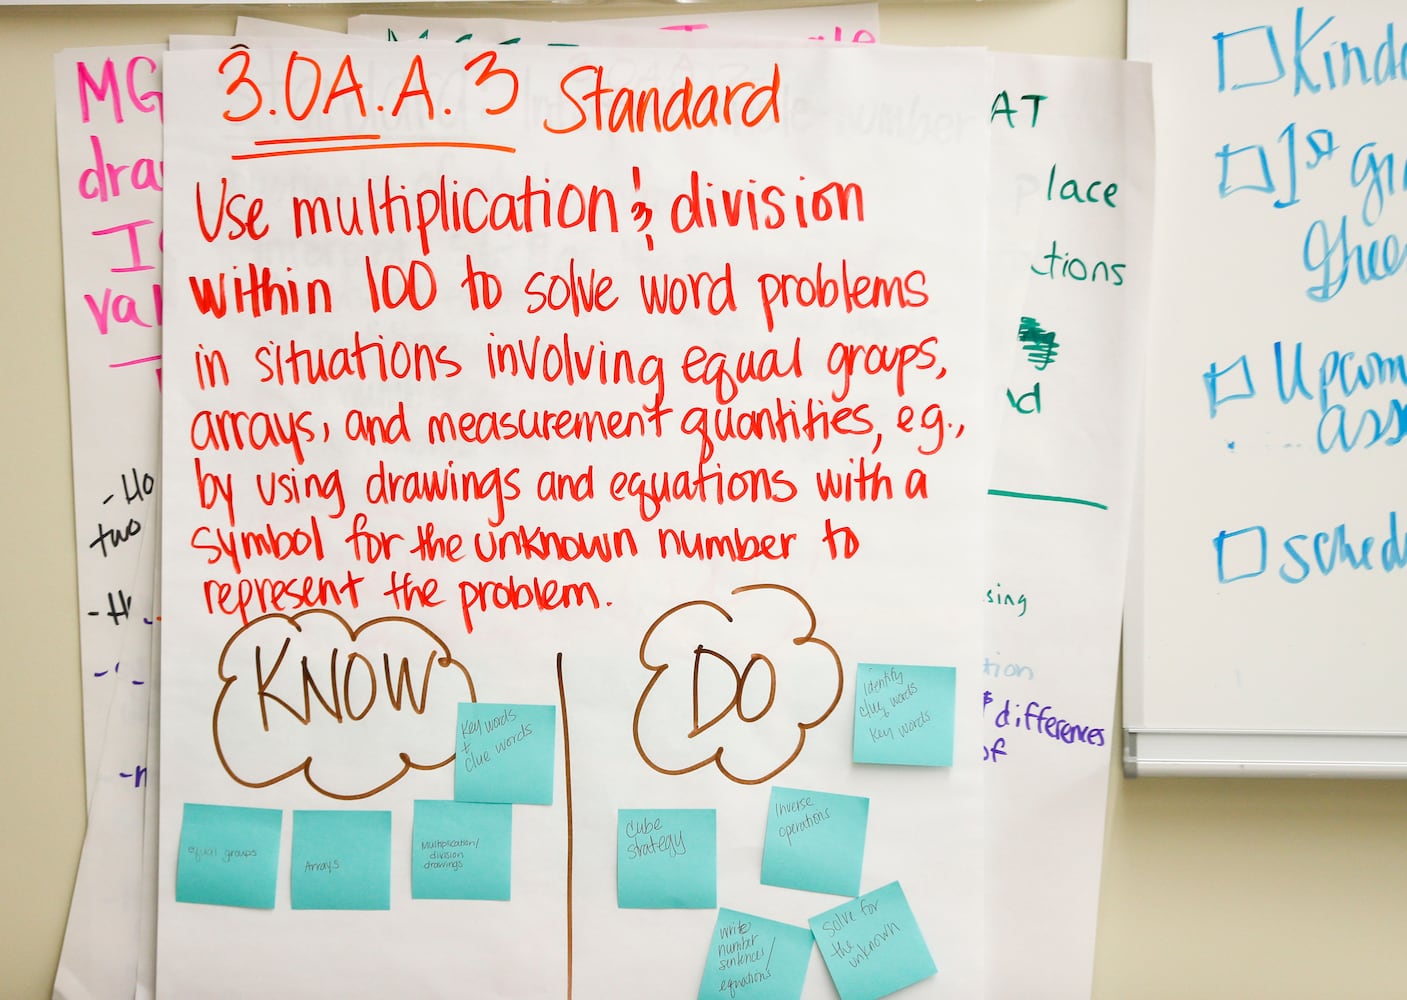 3.OA.A.3 Standard
Use multiplication & division
within 100 to solve word problems
in situations involving equal groups,
arrays, and measurement quantities, e.g.,
by using drawings and equations with a
symbol for the unknown number to
represent the problem.
KNOW
Key words
+
clue words
equal groups
Arrays
Multiplication/
division
drawings
DO
Identify
clue words
+
key words
Cube
strategy
Inverse
operations
write
number
sentences/
equations
solve for
the
unknown
MG
dra
I
val
- Ho
two
AT
place
tions
sing
tion
differences
of
Kinde
1st gr
Upcom
ass
sched